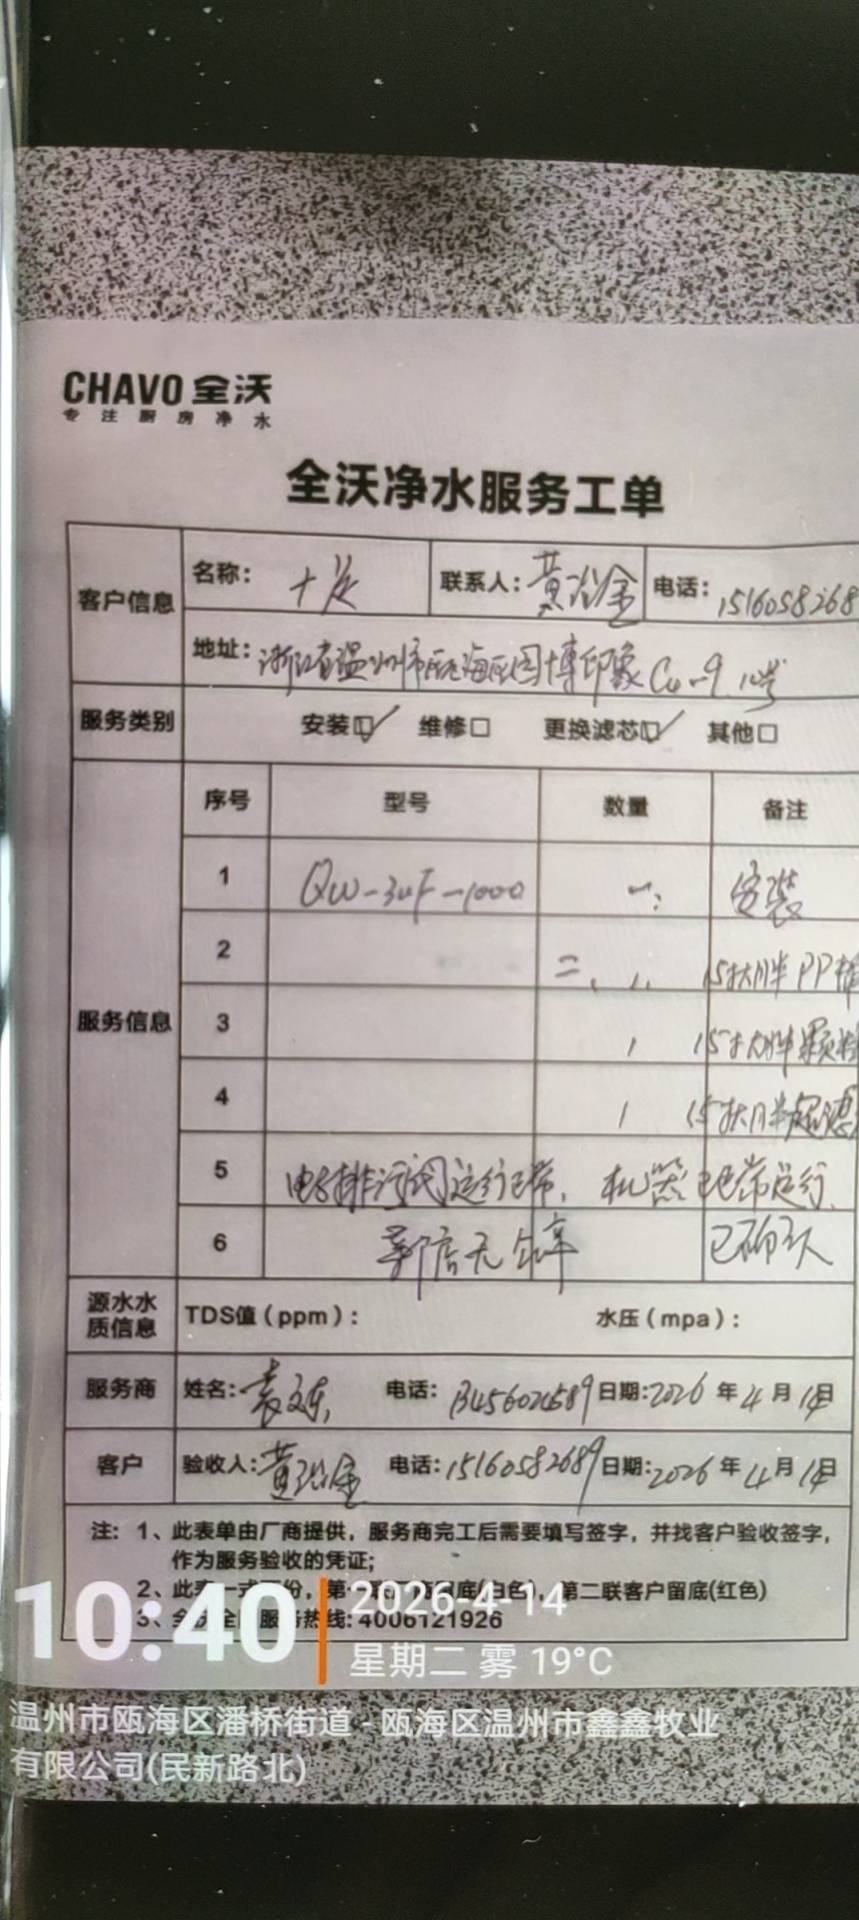 CHAVO 全沃
专注厨房净水
全沃净水服务工单
客户信息 名称: 联系人: 黄 金 电话: 1516058268
地址: 浙江省温州市瓯海区国博印象 C4-9 12号
服务类别 安装☑ 维修□ 更换滤芯☑ 其他□
服务信息 序号 型号 数量 备注
1 QW-3UF-1000 一; 安装
2 二、1, 15 胖PP棉
3 1 15 胖颗粒
4 1 15 胖超滤
5 电子排污阀运行正常, 机器已正常运行.
6 新店无 已确认
源水水质信息 TDS值(ppm): 水压(mpa):
服务商 姓名: 袁 电话: 日期: 2026 年 4 月 14日
客户 验收人: 黄 金 电话: 15160582689 日期: 2026 年 4 月 14日
注: 1、此表单由厂商提供, 服务商完工后需要填写签字, 并找客户验收签字,
作为服务验收的凭证;
2、此 一式 份, 第 底(白色), 第二联客户留底(红色)
3、全 全 服务热线: 4006121926
10:40
2026-4-14
星期二 雾 19°C
温州市瓯海区潘桥街道 - 瓯海区温州市鑫鑫牧业
有限公司(民新路北)